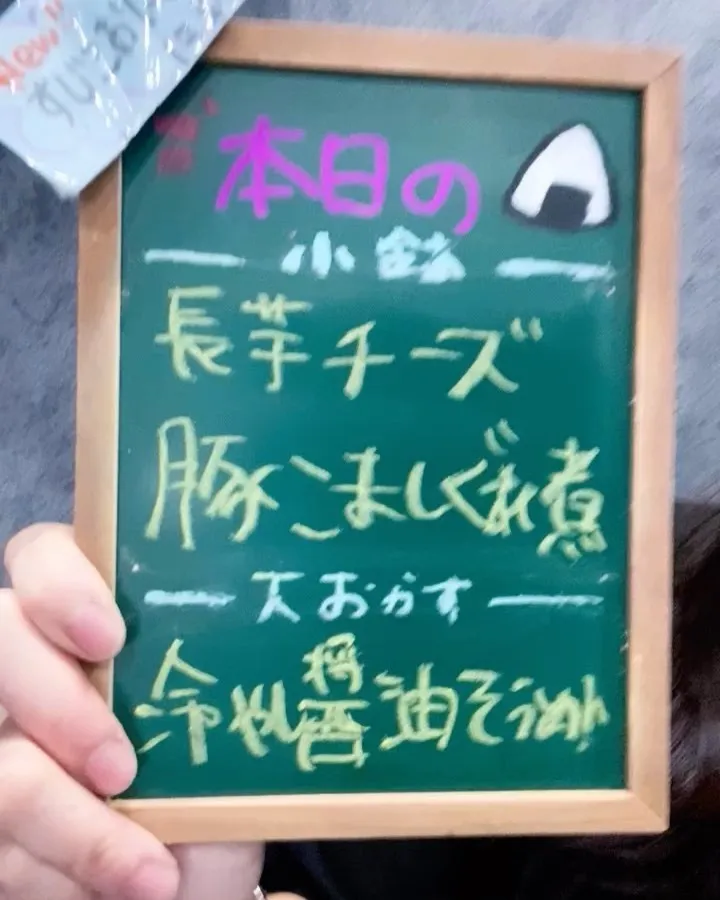 New
本日の
小鉢
長芋チーズ
豚こましぐれ煮
大おかず
冷やし醤油そうめん